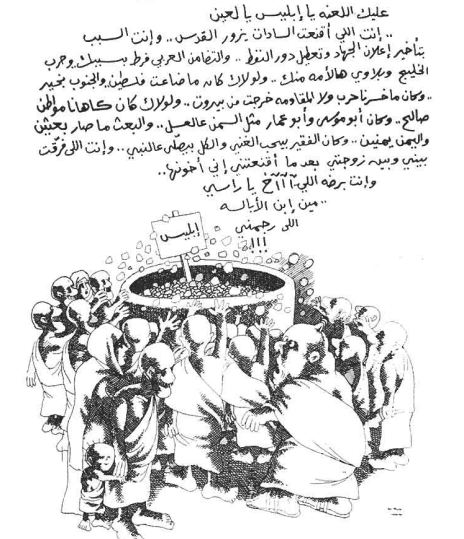 عليك اللعنه يا إبليس يا لعين
.. إنت اللي أقنعت السادات يزور القدس .. وإنت السبب
بتأخير إعلان الجهاد وتعطيل دور النفط .. والتضامن العربي فرط بسببك وحرب
الخليج وبلاوي هالأمه منك .. ولولاك كان ما ضاعت فلسطين والجنوب بخير
.. وكان ما خسرنا حرب ولا المقاومه خرجت من بيروت .. ولولاك كان كاهانا مواطن
صالح .. وكان أبو موسى وأبو عمار مثل السمن عالعسل .. والبعث ما صار بعثين
واليمن يمنين .. وكان الفقير بيحب الغني والكل بيصلي عالنبي .. وإنت اللي فرقت
بيني وبين زوجتي بعد ما أقنعتني إني أخونها ..
وإنت برضه اللي آآآآخ يا راسي
.. مين إبن الأبالسه
اللي رجمني
!!!
إبليس